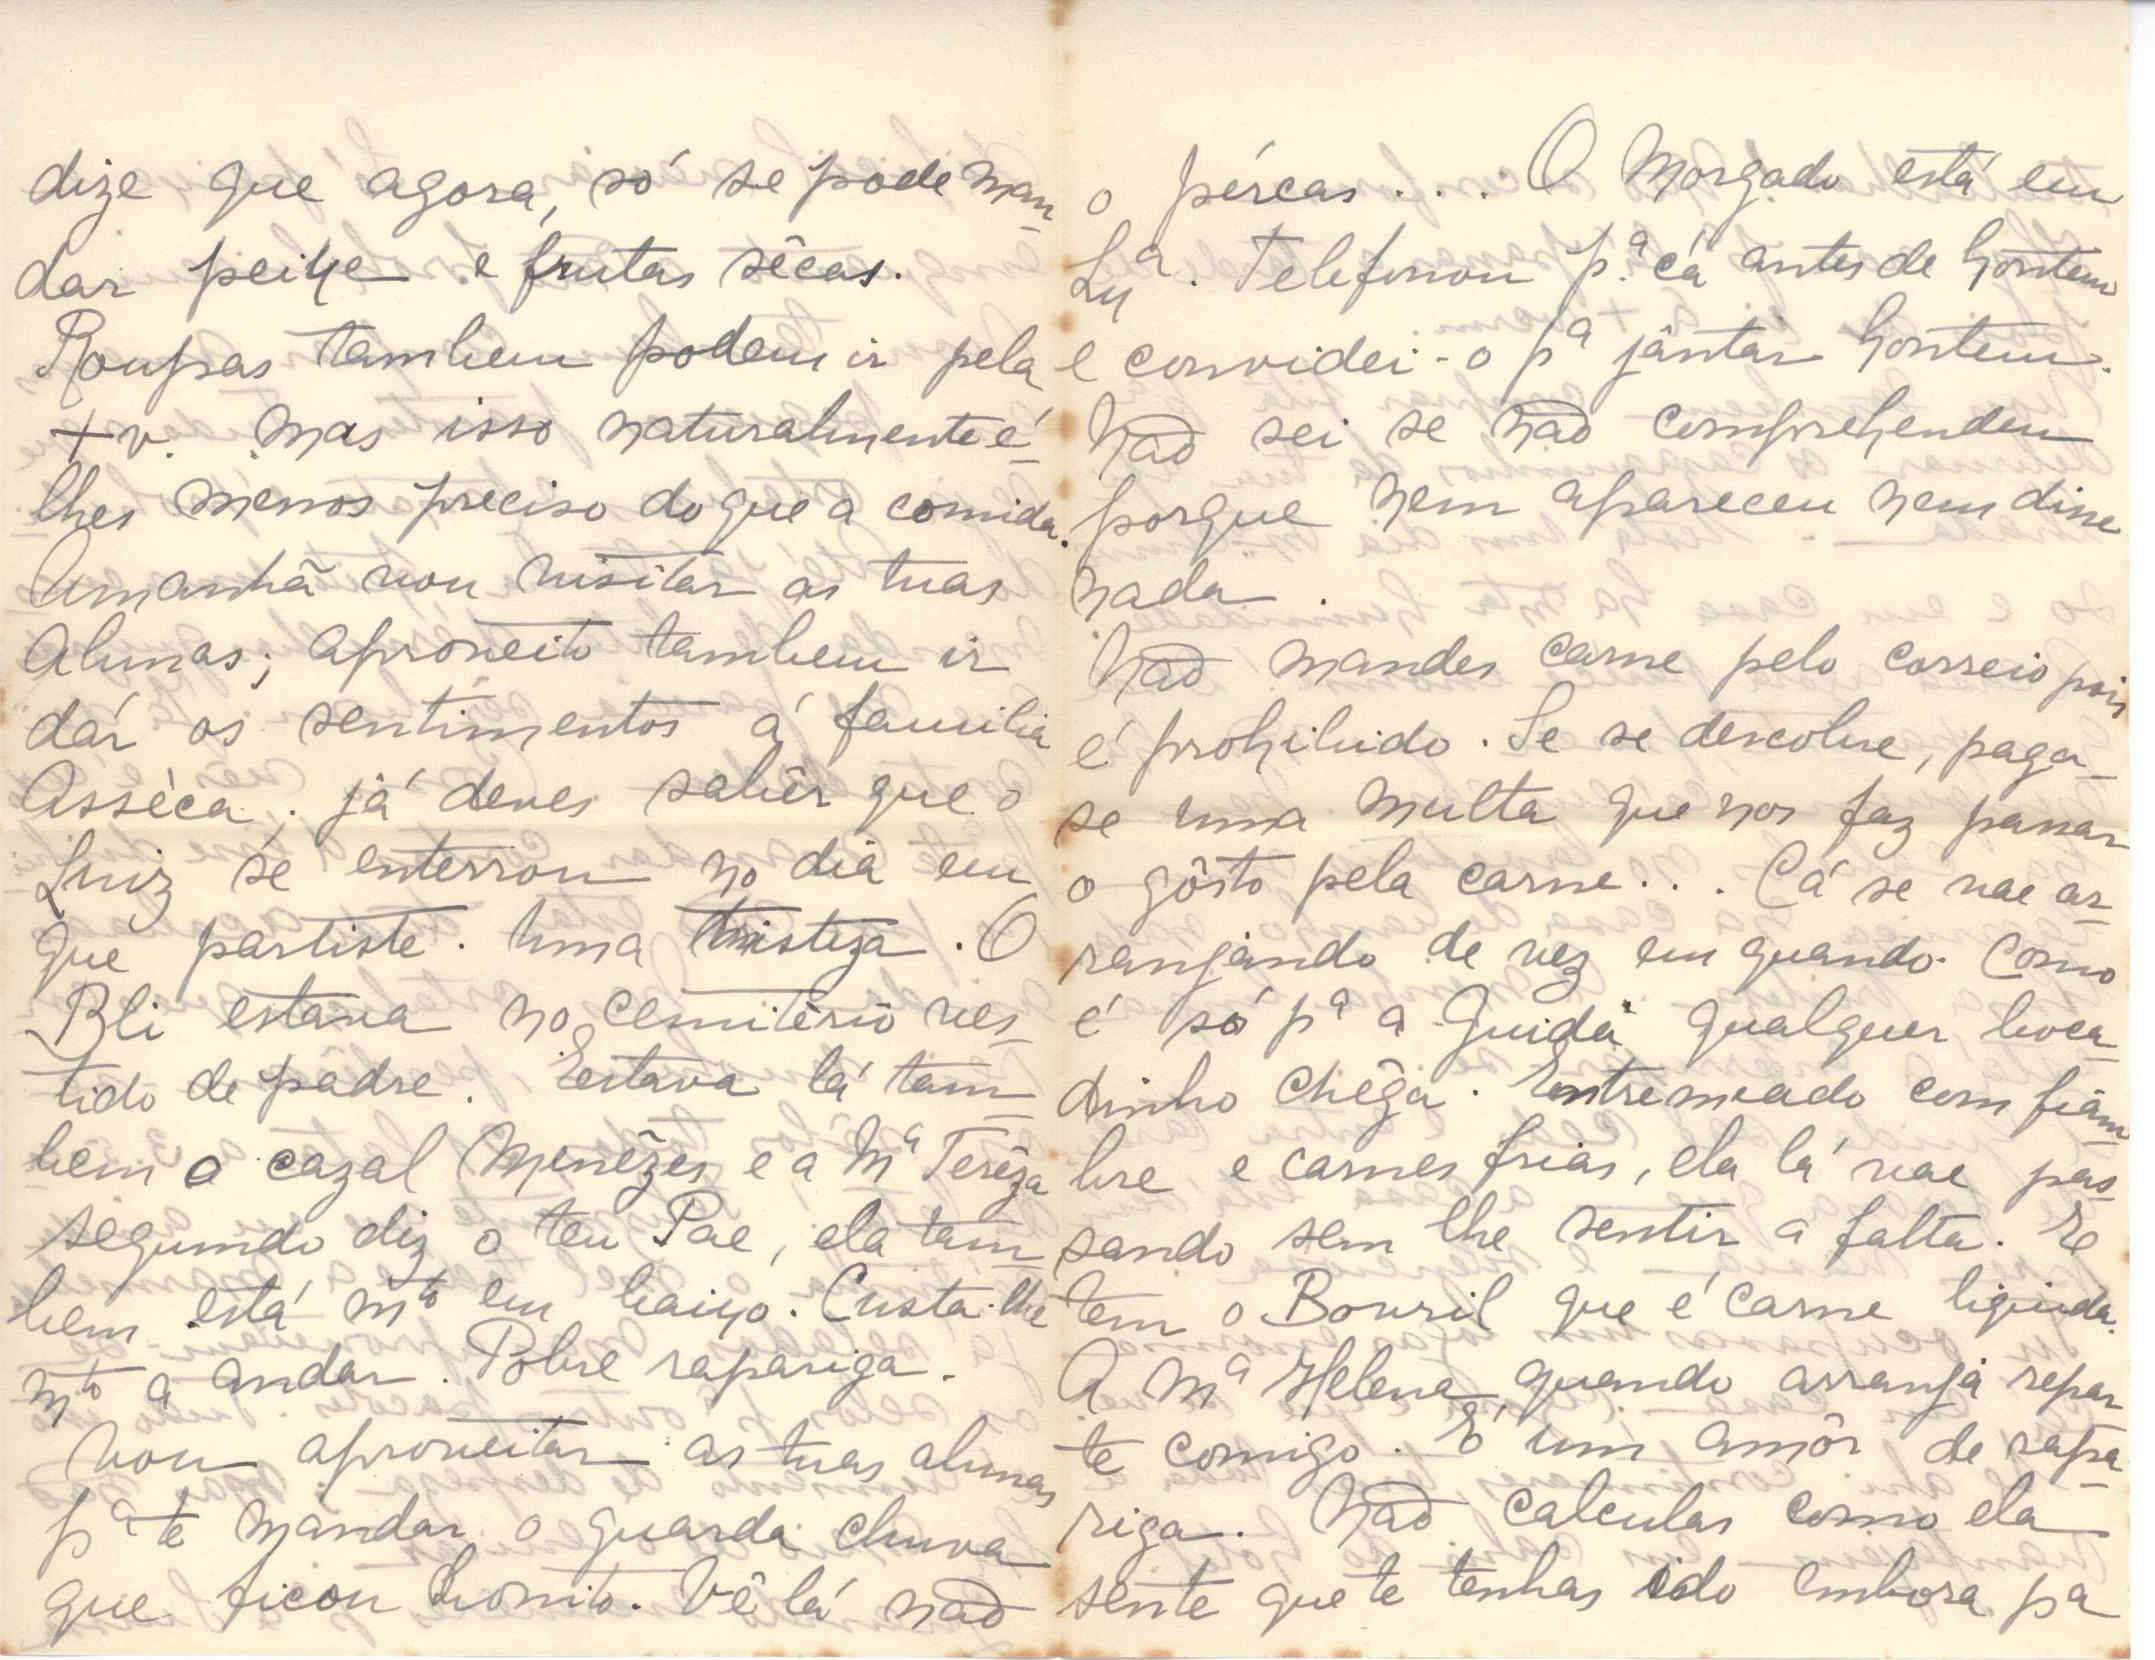 dize que agora, só se pode man-
dar peixe e frutas sêcas.
Roupas tambem podem ir pela
+ v. mas isso naturalmente é-
lhes menos preciso do que a comida.
Amanhã vou visitar as tuas
alunas; aproveito tambem ir
dár os sentimentos á familia
Assèca; já deves sabêr que o
Luiz se enterrou no dia em
que partiste. Uma tristeza. O
Bli estava no cemitério ves-
tido de padre. Estava lá tam-
bem o cazal Menêzes e a Mª Terêza
segundo diz o teu Pae, ela tam-
bem está mto em baixo. Custa-lhe
mto a andar. Pobre rapariga.
Vou aproveitar as tuas alunas
pª te mandar o guarda chuva
que ficou bonito. Vê lá não
o pércas... O Morgado está em
Lxª. Telefonou pª cá antes de hontem
e convidei-o pª jântar hontem.
Não sei se não comprehendeu
porque nem apareceu nem disse
nada.
Não mandes carne pelo correio pois
é prohibido. Se se descobre, paga-
se uma multa que nos faz passar
o gôsto pela carne... Cá se vae ar-
ranjando de vez em quando. Como
é só pª a Guida qualquer boca-
dinho chêga. Entremeado com fiam-
bre e carnes frias, ela lá vae pas-
sando sem lhe sentir a falta. E
tem o Bovril que é carne liquida.
A Mª Helena quando arranja repar-
te comigo. É um amôr de rapa-
riga. Não calculas como ela
sente que te tenhas ido embora pª